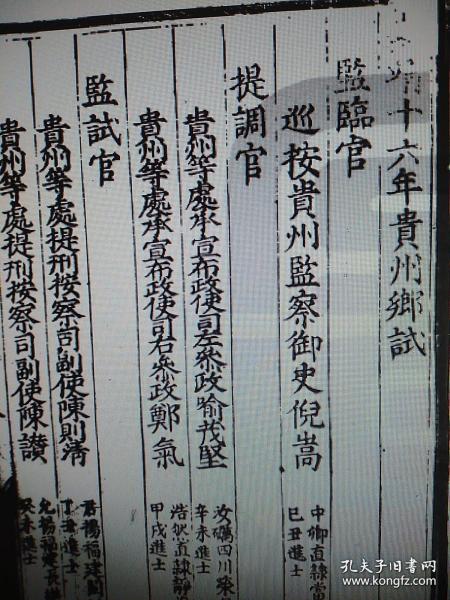 靖十六年貴州鄉試
監臨官
巡按貴州監察御史倪嵩
中卿直隸當
己丑進士
提調官
貴州等處承宣布政使司左參政喻茂堅
汝礪四川榮
辛未進士
貴州等處承宣布政使司右參政鄭氣
浩然直隸靜
甲戌進士
監試官
貴州等處提刑按察司副使陳則清
君揚福建閩
丁丑進士
貴州等處提刑按察司副使陳讃
允揚福建長
癸未進士
孔夫子旧书网
www.kongfz.com